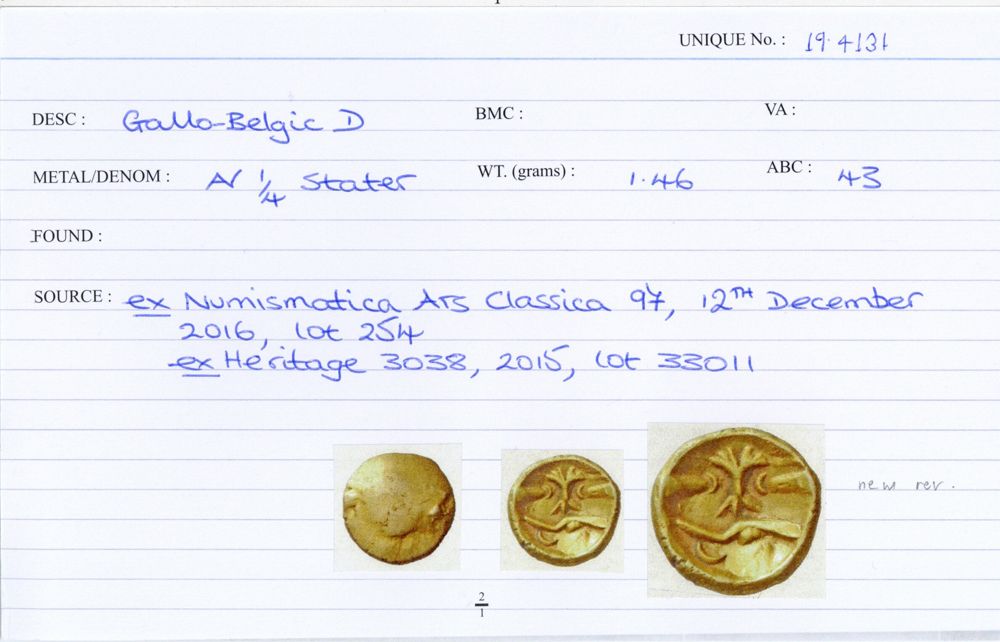 UNIQUE No. : 19.4131
DESC : Gallo-Belgic D BMC : VA :
METAL/DENOM : AV 1/4 Stater WT. (grams) : 1.46 ABC : 43
FOUND :
SOURCE : ex Numismatica Ars Classica 97, 12TH December
2016, lot 254
ex Heritage 3038, 2015, lot 33011
new rev.
2
1